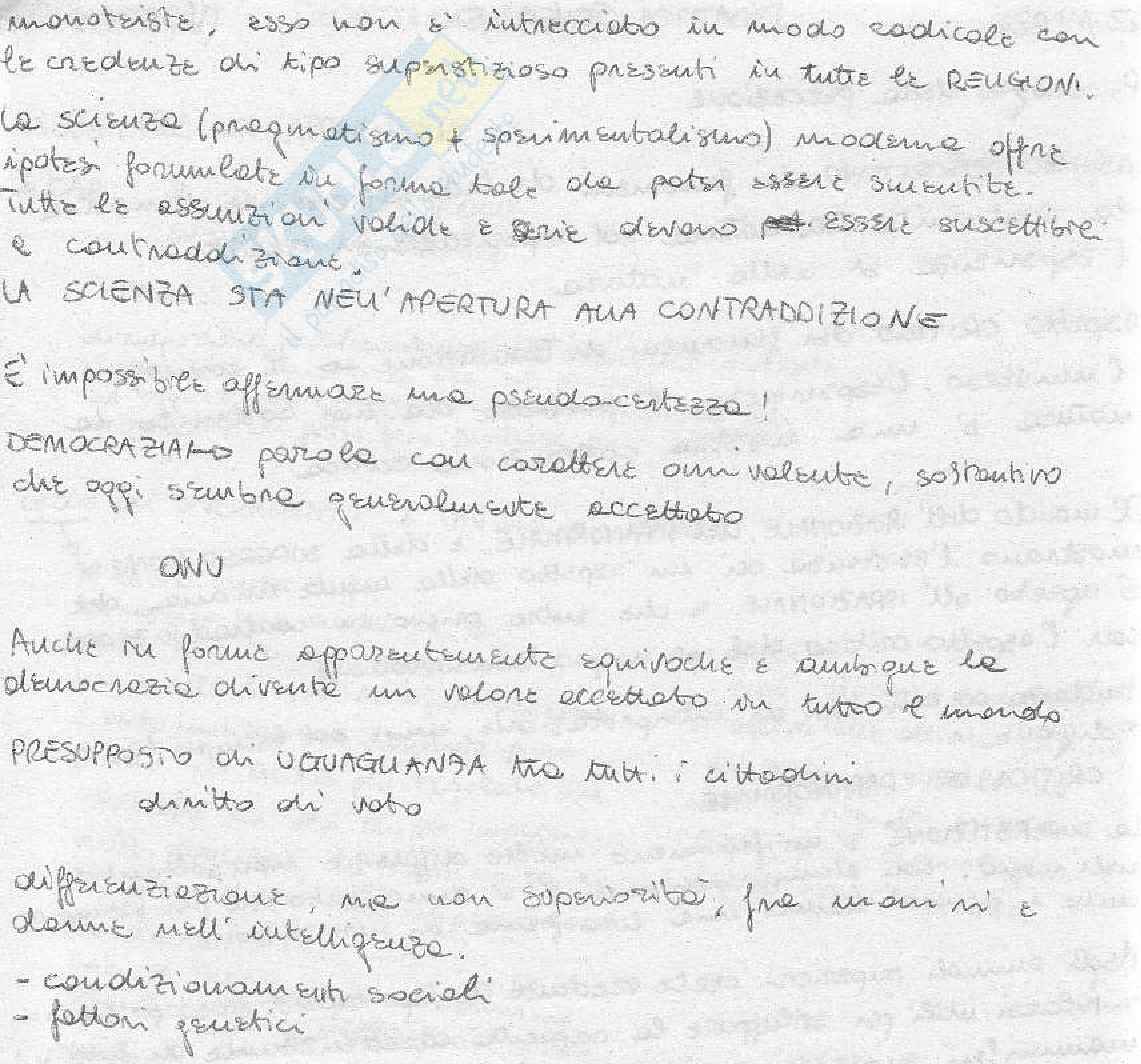 monoteiste, esso non è intrecciato in modo radicale con
le credenze di tipo superstizioso presenti in tutte le RELIGIONI.
La scienza (pragmatismo + sperimentalismo) moderna offre
ipotesi formulate in forma tale da poter essere smentite.
Tutte le assunzioni valide e serie devono essere suscettibili
a contraddizione.
LA SCIENZA STA NELL'APERTURA ALLA CONTRADDIZIONE
È impossibile affermare una pseudo-certezza!
DEMOCRAZIA → parola con carattere omnivalente, sostantivo
che oggi sembra generalmente accettato
ONU
Anche in forme apparentemente equivoche e ambigue la
democrazia diventa un valore accettato in tutto il mondo
PRESUPPOSTO di UGUAGLIANZA tra tutti i cittadini
diritto di voto
differenziazione, ma non superiorità, fra uomini e
donne nell'intelligenza.
- condizionamenti sociali
- fattori genetici